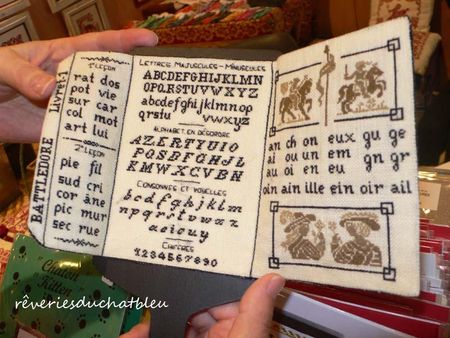 BATTLEDORE Livret 1
1e Leçon
rat dos
pot vie
sur car
col mot
art lui
2e Leçon
pie fil
sud cri
cor âne
pic mur
sec rue
Lettres Majuscules - Minuscules
ABCDEFGHIJKLMN
OPQRSTUVWXYZ
abcdefghijklmnop
qrstuvwxyz
Alphabet en Désordre
AZERTYUIO
PQSDFGHJL
KMWXCVBN
Consonnes et Voyelles
bcdfghjklm
npqrstvwxz
aeiouy
Chiffres
1234567890
an ch on eux gu ge
ai ou un em gn gr
au oi en eu
oin ain ille ein oir ail
Chaton
Kitten
rêveriesduchatbleu